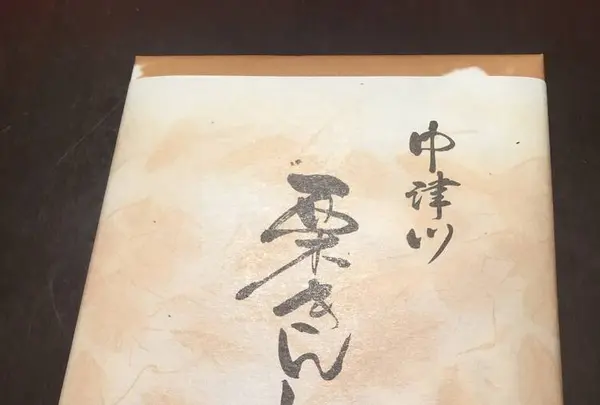 中津川
栗きん